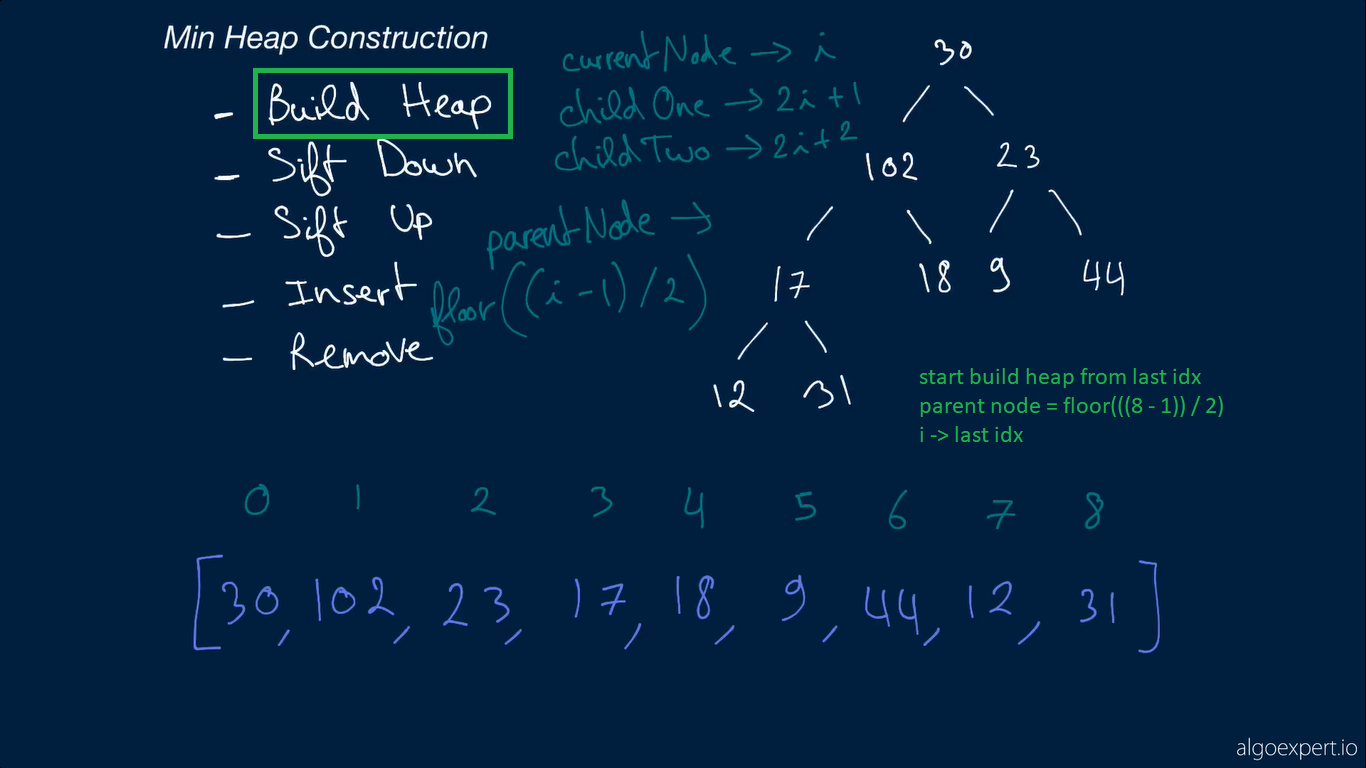 Min Heap Construction
- Build Heap
- Sift Down
- Sift Up
- Insert
- Remove
currentNode → i
childOne → 2i+1
childTwo → 2i+2
parentNode →
floor((i-1)/2)
30
102 23
17 18 9 44
12 31
start build heap from last idx
parent node = floor(((8 - 1)) / 2)
i -> last idx
0 1 2 3 4 5 6 7 8
[30, 102, 23, 17, 18, 9, 44, 12, 31]
algoexpert.io